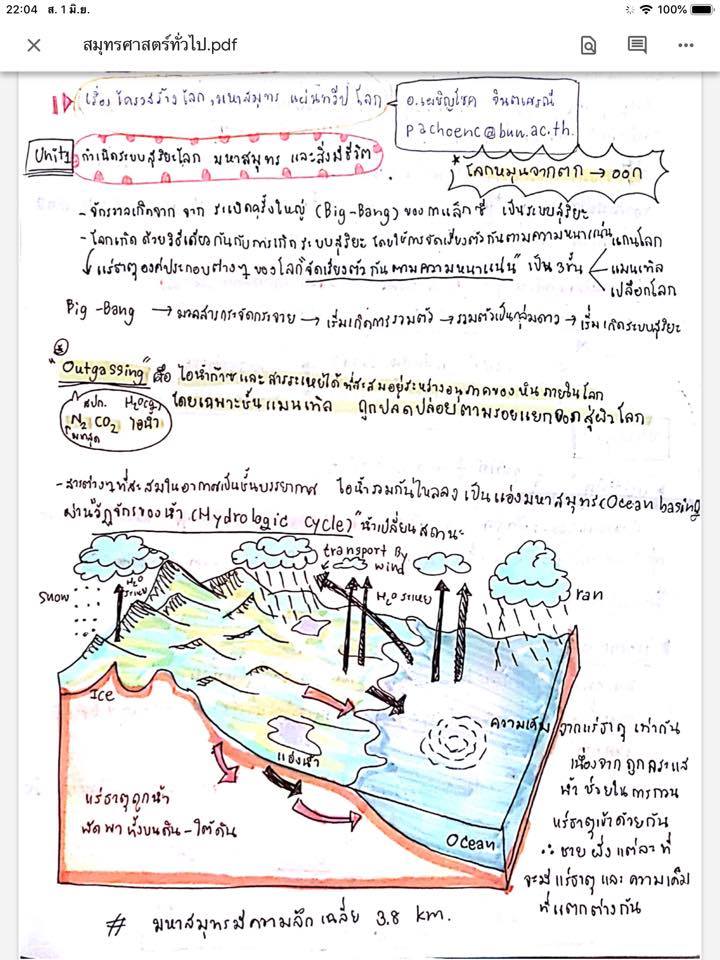 22:04 ส. 1 มิ.ย.
100%
สมุทรศาสตร์ทั่วไป.pdf
เรื่อง โครงสร้างโลก มหาสมุทร แผ่นทวีป โลก
อ.เผชิญโชค จินตเศรณี
pachoenc@buu.ac.th.
Unit1 กำเนิดระบบสุริยะโลก มหาสมุทร และสิ่งมีชีวิต
* โลกหมุนจากตก → ออก
- จักรวาลเกิดจาก จาก ระเบิดครั้งใหญ่ (Big-Bang) ของกาแล็กซี่ เป็นระบบสุริยะ
- โลกเกิดด้วยวิธีเดียวกันกับการเกิดระบบสุริยะ โดยใช้การจัดเรียงตัวกันตามความหนาแน่น
แร่ธาตุองค์ประกอบต่างๆ ของโลก "จัดเรียงตัวกันตามความหนาแน่น" เป็น 3 ชั้น
แกนโลก
แมนเทิล
เปลือกโลก
Big-Bang → มวลสารกระจัดกระจาย → เริ่มเกิดการรวมตัว → รวมตัวเป็นกลุ่มดาว → เริ่มเกิดระบบสุริยะ
"Outgassing" คือ ไอน้ำก๊าซและสารระเหยได้ที่สะสมอยู่ระหว่างอนุภาคของหินภายในโลก
โดยเฉพาะชั้นแมนเทิล ถูกปลดปล่อยตามรอยแยกออกสู่ผิวโลก
สปก. H₂O(g)
N₂ CO₂ ไอน้ำ
มากสุด
- สารต่างๆที่สะสมในอากาศเป็นชั้นบรรยากาศ ไอน้ำรวมกันไหลลงเป็นแอ่งมหาสมุทร (Ocean basing)
ผ่าน"วัฏจักรของน้ำ (Hydrologic Cycle)" น้ำเปลี่ยนสถานะ
transport By
wind
Snow
H₂O
ระเหย
H₂O ระเหย
ran
Ice
แอ่งน้ำ
แร่ธาตุถูกน้ำ
พัดพา ทั้งบนดิน-ใต้ดิน
Ocean
ความเค็ม จากแร่ธาตุ เท่ากัน
เนื่องจาก ถูกกระแส
น้ำ ช่วยในการกวน
แร่ธาตุเข้าด้วยกัน
∴ ชายฝั่งแต่ละที่
จะมีแร่ธาตุ และ ความเค็ม
ที่แตกต่างกัน
# มหาสมุทรมีความลึกเฉลี่ย 3.8 km.